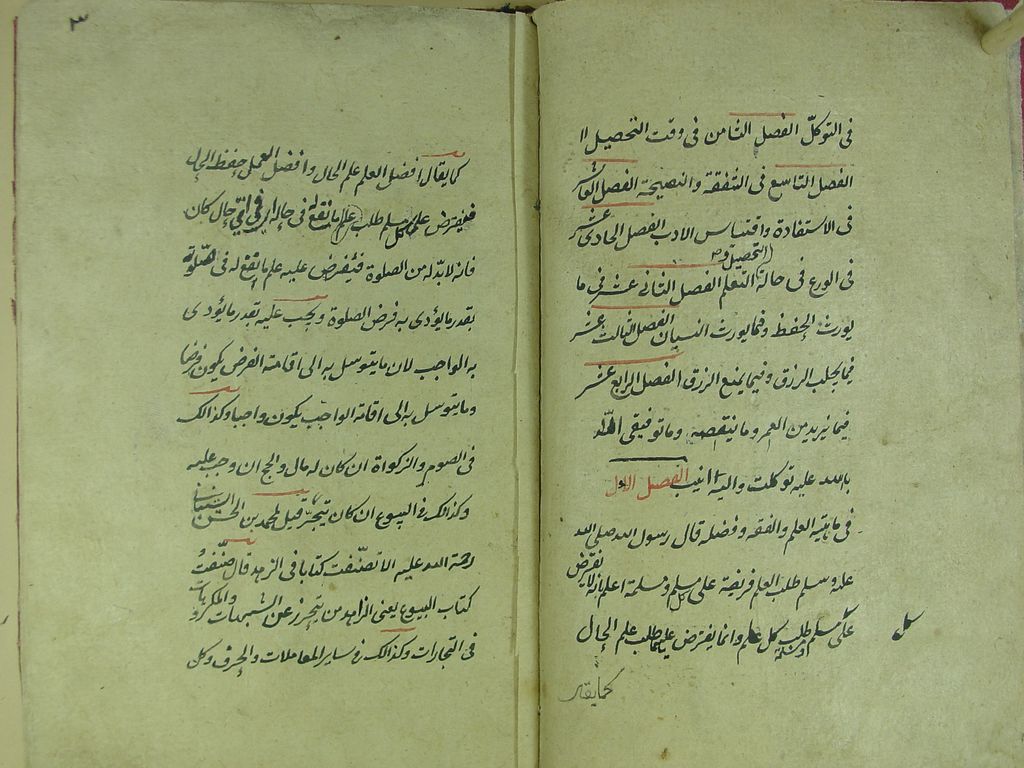 فى التوكلّ الفصل الثامن فى وقت التحصيل
الفصل التاسع فى الشفقة والنصيحة الفصل العاشر
فى الاستفادة واقتباس الادب الفصل الحادى عشر
التحصيل و
فى الورع فى حالة التعلم الفصل الثانى عشر فى ما
يورث الحفظ وفيما يورث النسيان الفصل الثالث عشر
فيما يجلب الرزق وفيما يمنع الرزق الفصل الرابع عشر
فيما يزيد من العمر وما ينقصه وما توفيقى الا
بالله عليه توكلت واليه انيب الفصل الاول
فى ماهية العلم والفقه وفضله قال رسول الله صلى الله
عليه وسلم طلب العلم فريضة على كل مسلم ومسلمة اعلم انه لا يفترض
على كل مسلم ومسلمة طلب كل علم وانما يفترض عليه طلب علم الحال
كما يقال
٣
كما يقال افضل العلم علم الحال وافضل العمل حفظ الحال
فيفترض على كل مسلم طلب علم ما يقع له فى حاله فى اى حال كان
فانه لابد له من الصلوة فيفترض عليه علم ما يقع له فى صلوته
بقدر ما يؤدى به فرض الصلوة ويجب عليه بقدر ما يؤدى
به الواجب لان ما يتوسل به الى اقامة الفرض يكون فرضا
وما يتوسل به الى اقامة الواجب يكون واجبا وكذالك
فى الصوم والزكواة ان كان له مال والحج ان وجب عليه
وكذالك فى البيوع ان كان يتجر قيل لمحمد بن الحسن
رحمة الله عليه الا تصنّفت كتابا فى الزهد قال صنّفت
كتاب البيوع يعنى الزاهد من يتحرز عن الشبهات والمكروهات
فى التجارات وكذالك فى ساير المعاملات والحرف وكل